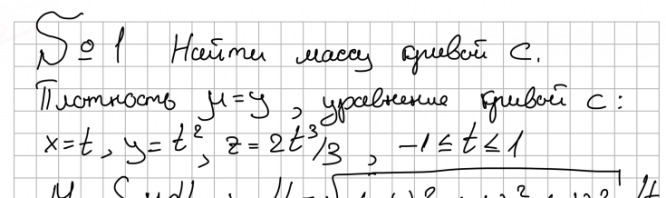 № 1 Найти массу кривой C.
Плотность μ=y, уравнение кривой C:
x=t, y=t², z=2t³/3, -1≤t≤1